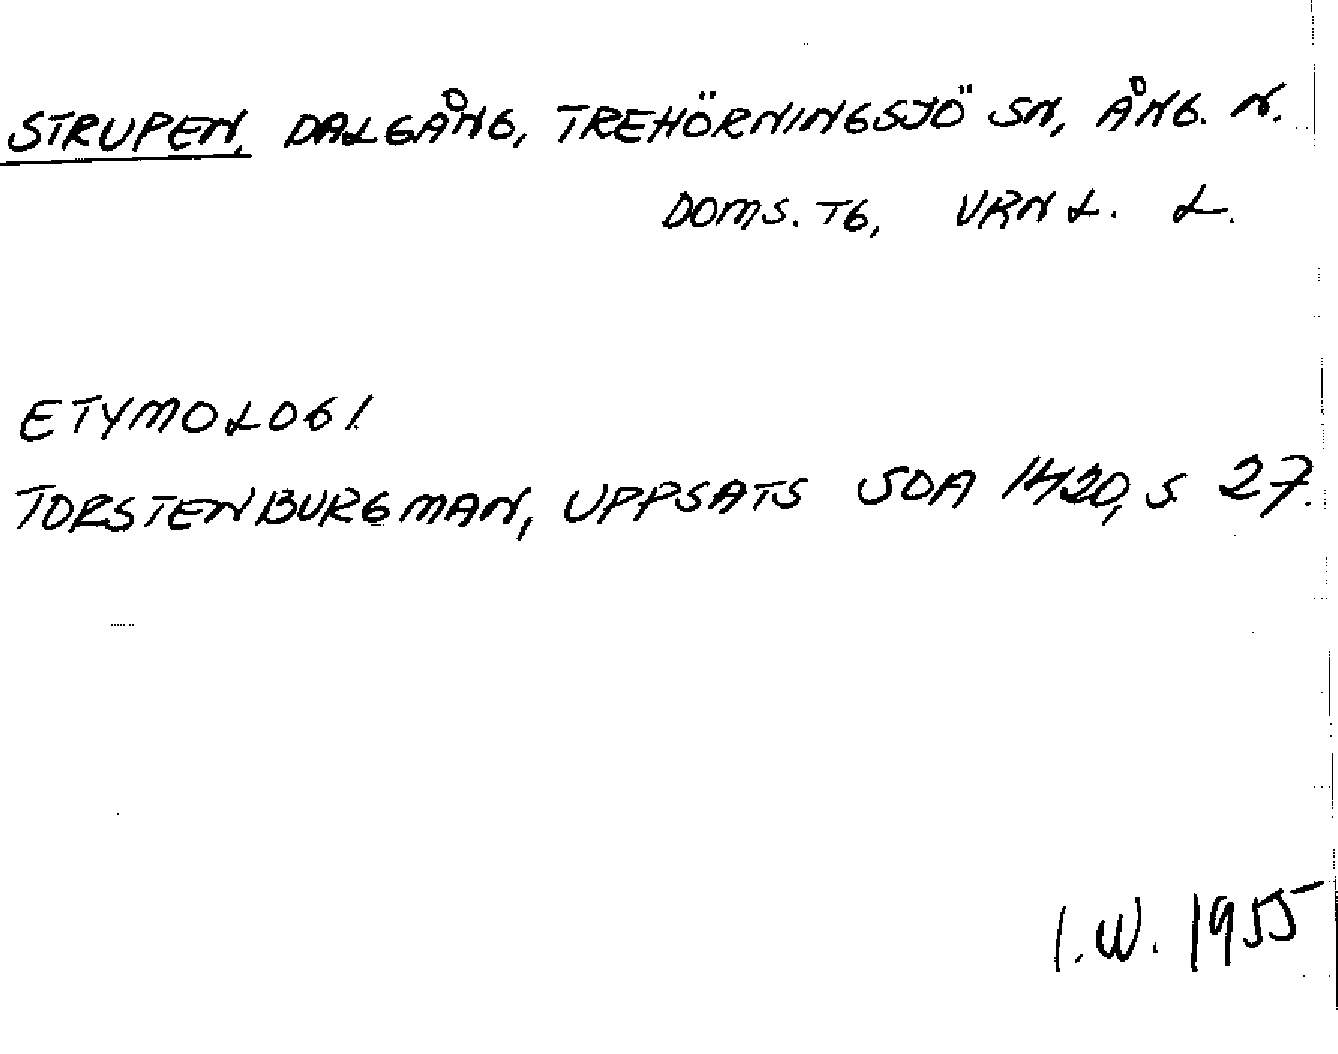 STRUPEN, DALGÅNG, TREHÖRNINGSJÖ SN, ÅNG. N.
DOMS. TG, VRNL. L.
ETYMOLOGI
TORSTEN BURGMAN, UPPSATS SOA 1420, S 27.
I.W. 1955